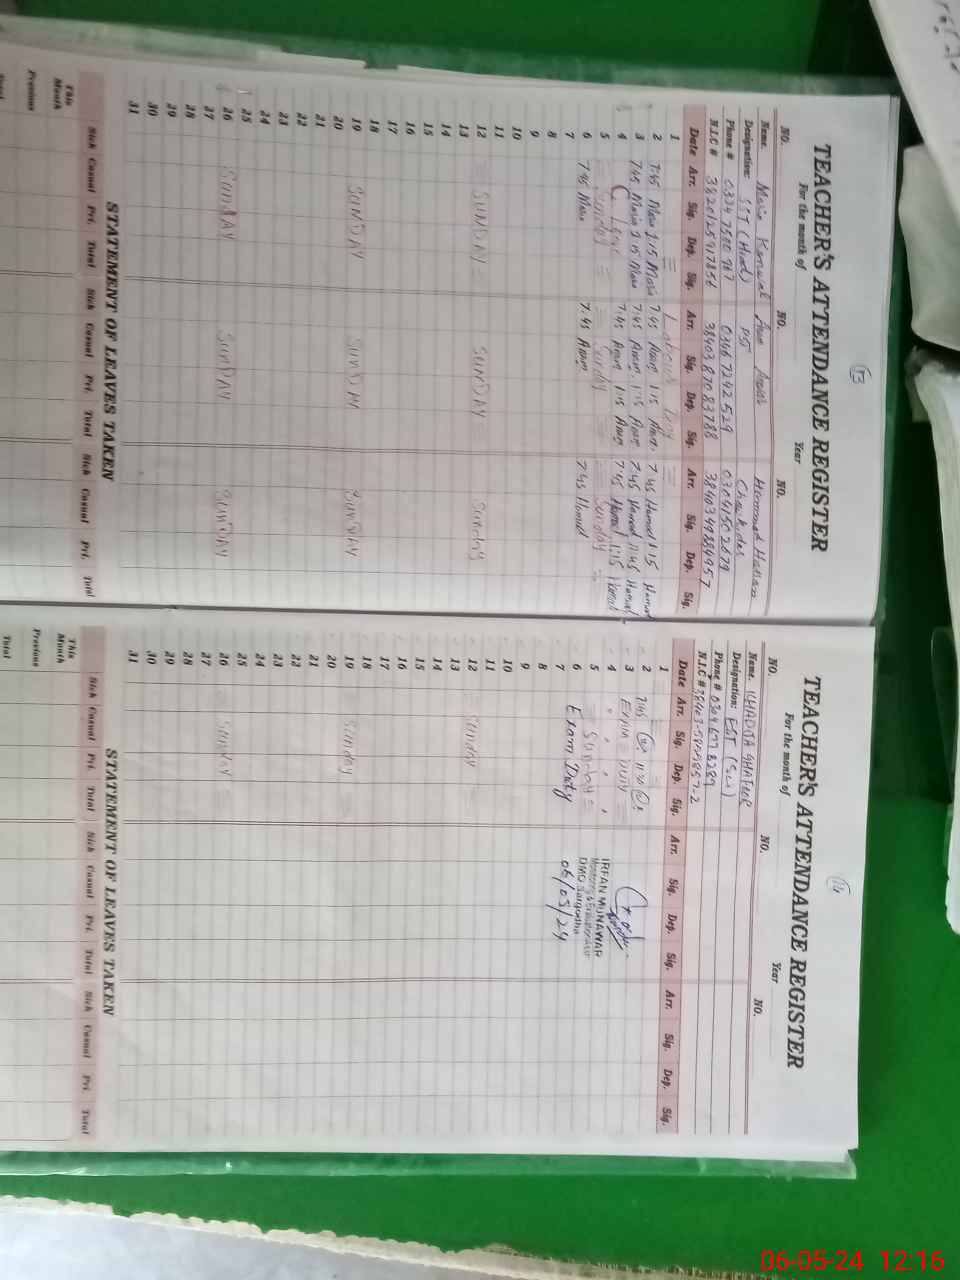 13
TEACHER'S ATTENDANCE REGISTER
For the month of Year
NO. NO. NO.
Name. Maria Kanwal Hammad Hassan
Designation: SST (Head) PST Chowkidar
Phone # 0334 7500 787 0346 7242 529 03041502679
N.I.C # 3820125917856 38403 8708 3788 3840349889957
Date Arr. Sig. Dep. Sig. Arr. Sig. Dep. Sig. Arr. Sig. Dep. Sig.
1 = Labour Day =
2 7:45 Maria 1:15 Maria 7:45 Anam 1:15 Anam 7:45 Hamad 1:15 Hamad
3 7:45 Maria 1:15 Maria 7:45 Anam 1:15 Anam 7:45 Hamad 11:45 Hamad
4 C. Leave 7:45 Anam 1:15 Anam 7:45 Hamad 1:15 Hamad
5 = Sunday = = Sunday = = Sunday =
6 7:45 Maria 7:45 Anam 7:45 Hamad
7
8
9
10
11
12 = SUNDAY = SUNDAY = Sunday
13
14
15
16
17
18
19 SUNDAY SUNDAY SUNDAY
20
21
22
23
24
25
26 SUNDAY SUNDAY SUNDAY
27
28
29
30
31
STATEMENT OF LEAVES TAKEN
Sick Casual Pri. Total Sick Casual Pri. Total Sick Casual Pri. Total
This Month
Previous
Total
14
TEACHER'S ATTENDANCE REGISTER
For the month of Year
NO. NO. NO.
Name. KHADIJA GHAFOOR
Designation: EST (Sci)
Phone # 0304 677 8289
N.I.C #
Date Arr. Sig. Dep. Sig. Arr. Sig. Dep. Sig. Arr. Sig. Dep. Sig.
1
2 7:45 11:30
3 Exam = DUTY =
4 " " " "
5 = Sunday =
6 Exam Duty
IRFAN MUNAWAR
DMO Sargodha
06/05/24
7
8
9
10
11
12 Sunday
13
14
15
16
17
18
19 Sunday
20
21
22
23
24
25
26 Sunday
27
28
29
30
31
STATEMENT OF LEAVES TAKEN
Sick Casual Pri. Total Sick Casual Pri. Total Sick Casual Pri. Total
This Month
Previous
Total
06-05-24 12:16